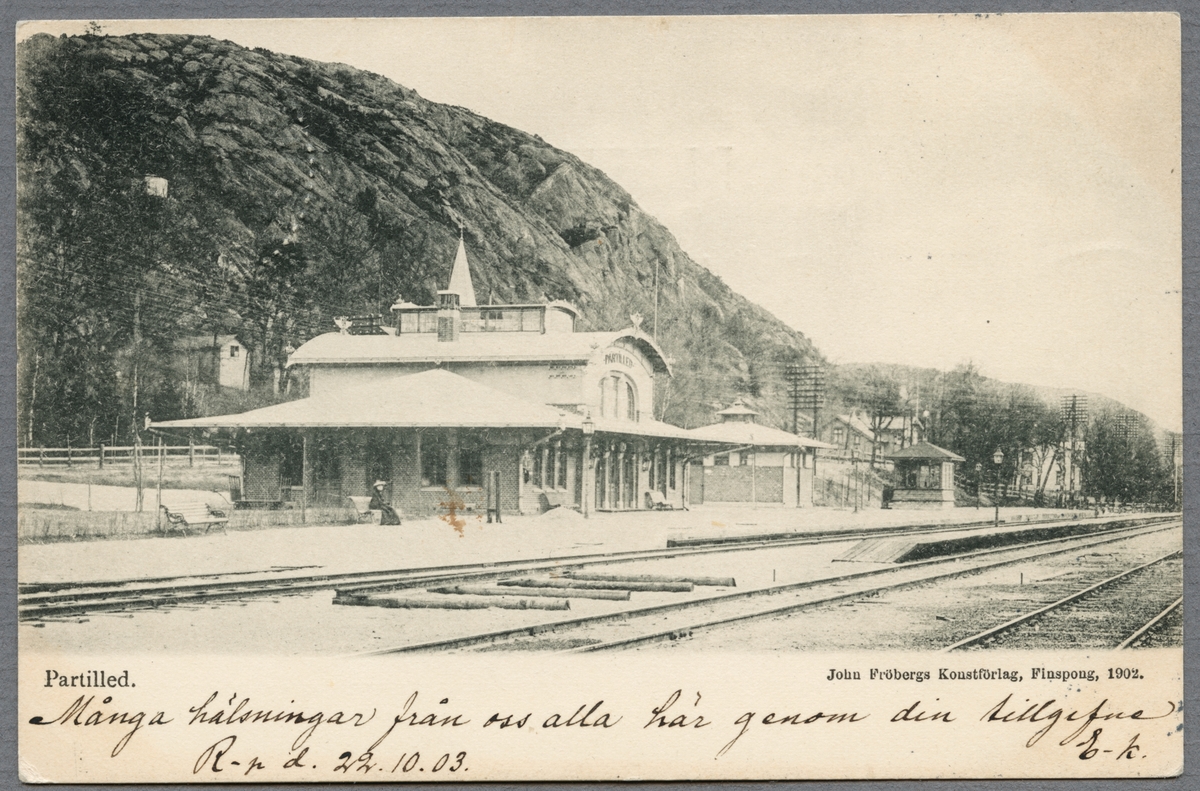 PARTILLED
Partilled.
John Fröbergs Konstförlag, Finspong, 1902.
Många hälsningar från oss alla här genom din tillgifne
E-k.
R-n d. 22.10.03.